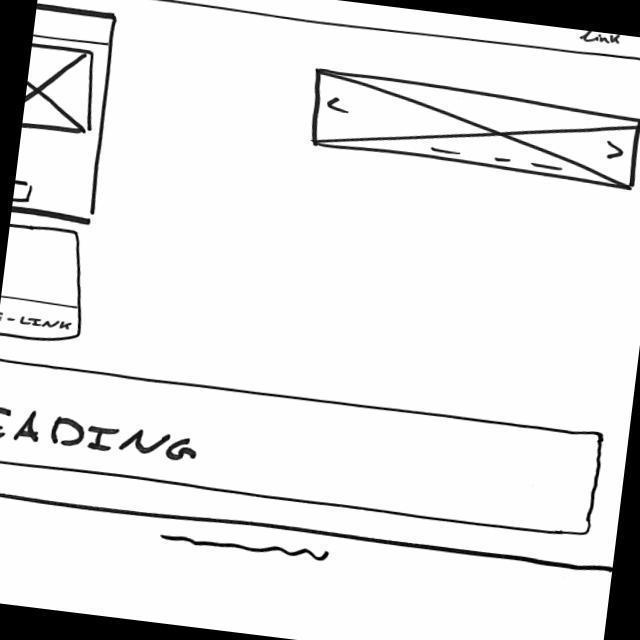 Link
-LINK
EADING